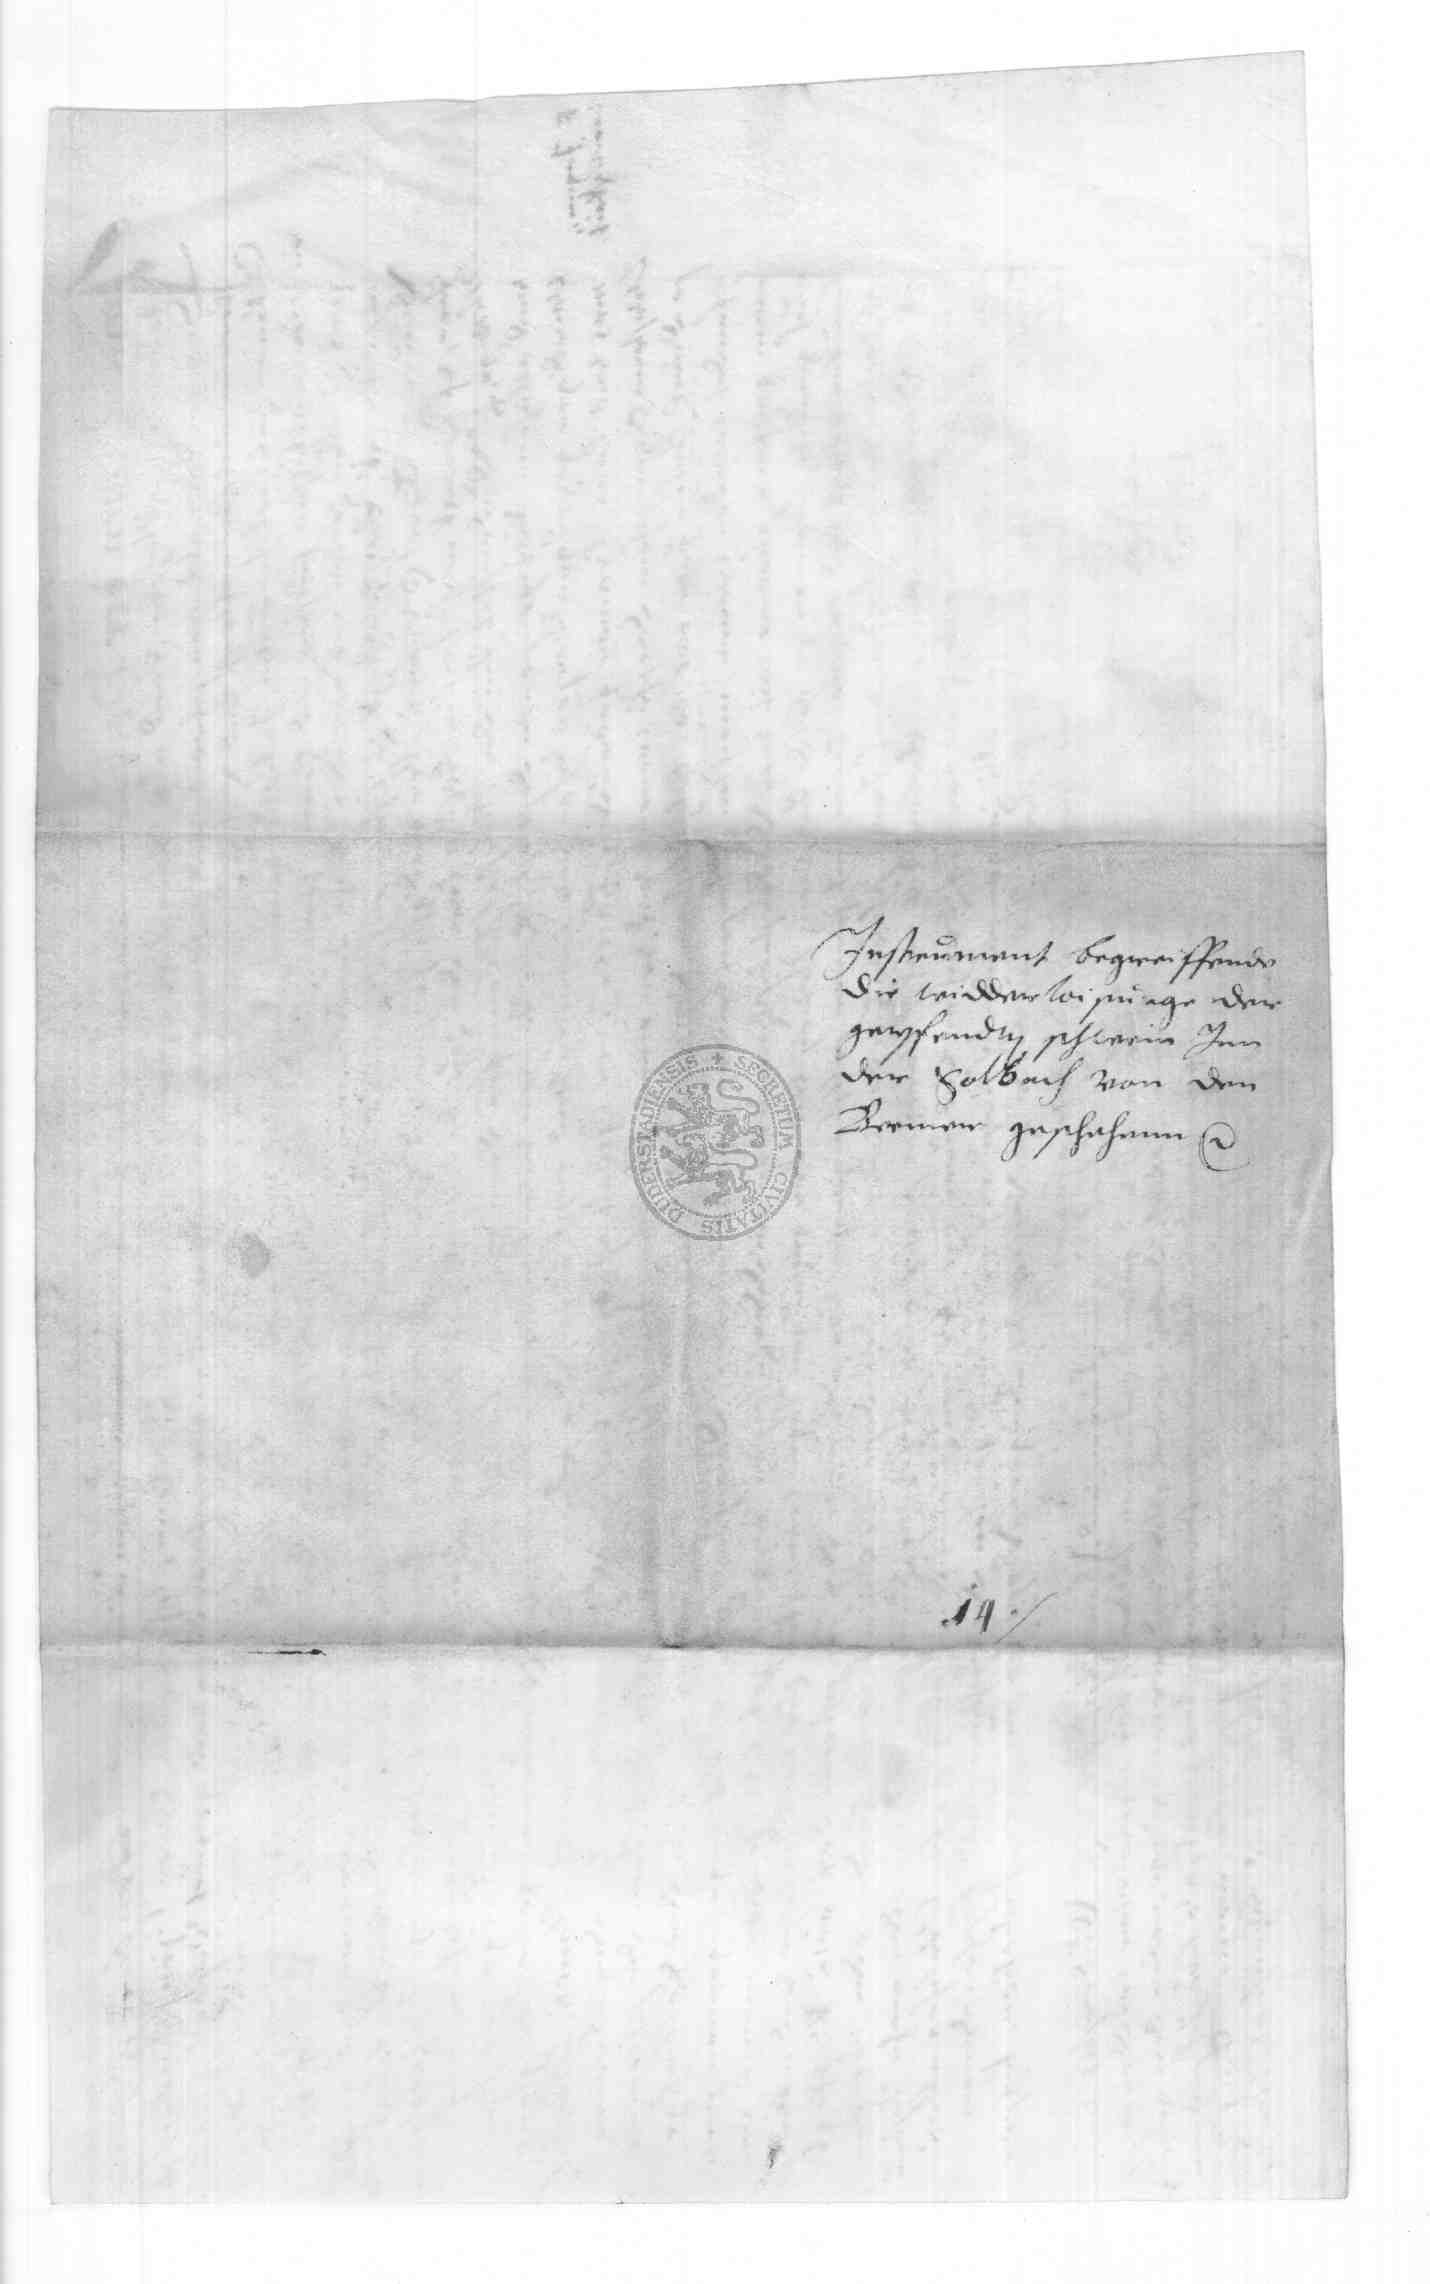 Instrument begreiffende
die widderloisunge der
gepfendten schwein Inn
der Solbach von den
Bremer geschehenn
14 ./
SECRETUM CIVITATIS DUDERSTADIENSIS